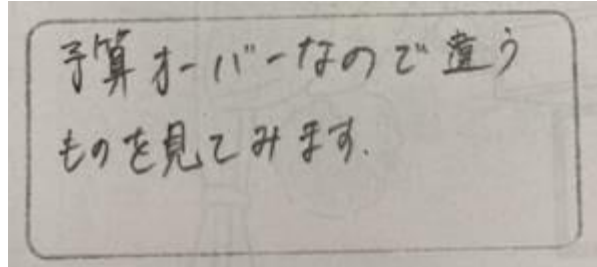 予算オーバーなので違う
ものを見てみます.